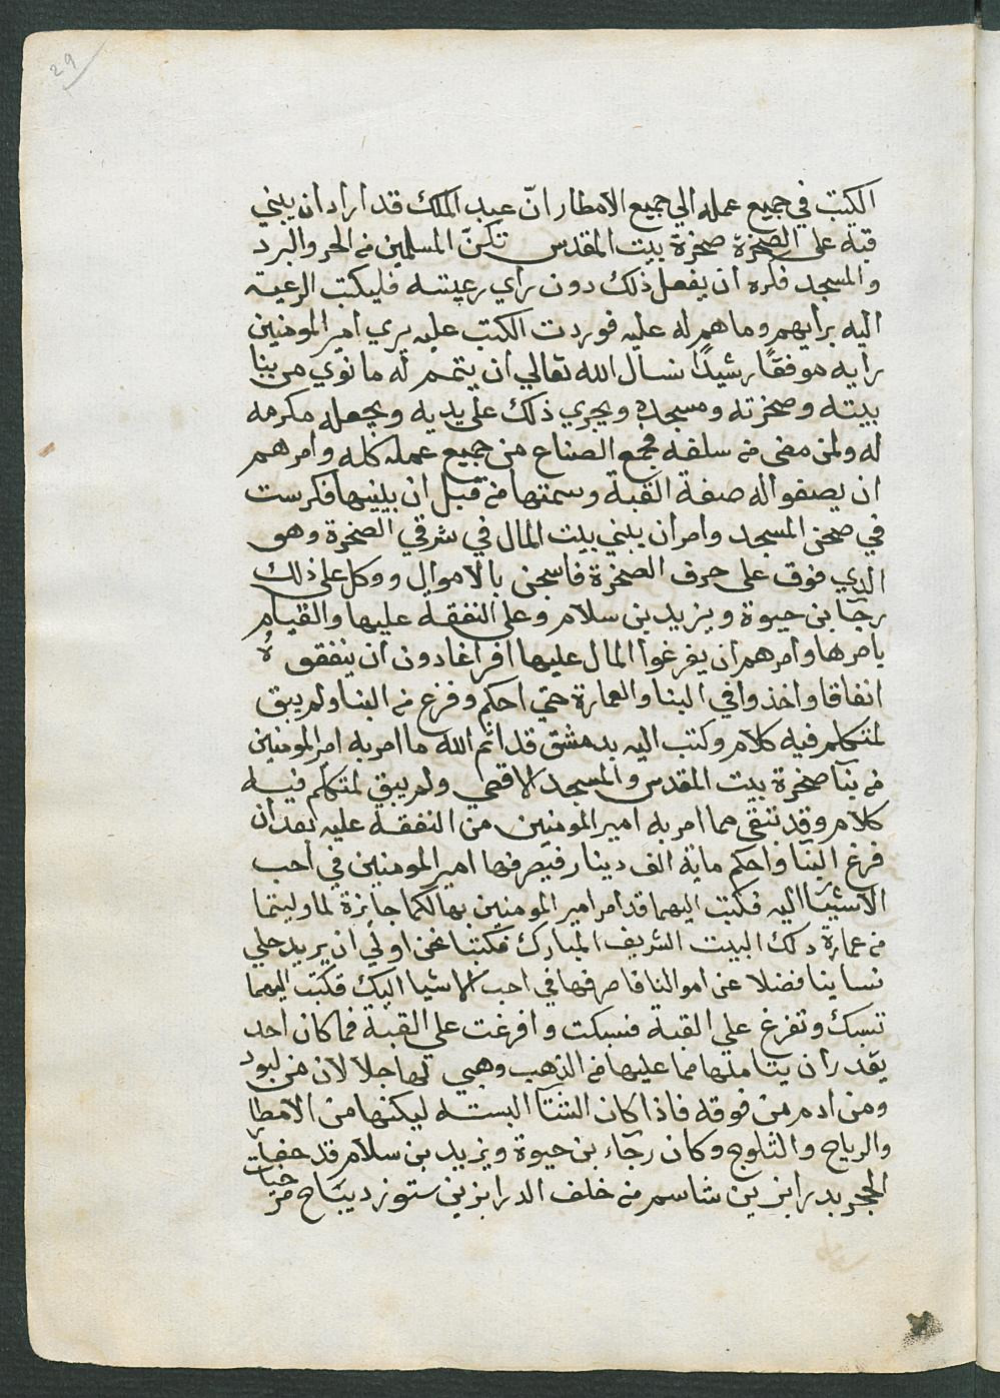 29
الكتب في جميع عمله الي جميع الامطار انّ عبد الملك قد اراد ان يبني
قبة على الصخرة صخرة بيت المقدس تكنّ المسلمين من الحر والبرد
والمسجد فكره ان يفعل ذلك دون راي رعيته فليكتب الرعية
اليه برايهم وما هم له عليه فوردت الكتب عليه يري امير المومنين
رايه موفقًا رشيدًا نسال الله تعالي ان يتمم له ما نوي من بنا
بيته وصخرته ومسجده ويجري ذلك على يديه ويجعله مكرمه
له ولمن مضى من سلفه فجمع الصناع من جميع عمله كله وامرهم
ان يصفوا له صفة القبة وسمتها من قبل ان يبنيها فكرست
في صحن المسجد وامر ان يبني بيت المال في شرقي الصخرة وهو
الذي فوق على حرف الصخرة فاشحن بالاموال ووكل على ذلك
رجآ بن حيوة ويزيد بن سلام وعلى النفقة عليها والقيام
بامرها وامرهم ان يفرغوا المال عليها افراغا دون ان ينفقوه
انفاقا واخذوا في البنا والعمارة حتي احكم وفرغ من البنا ولم يبق
لمتكلم فيه كلام وكتب اليه بدمشق قد اتم الله ما امر به امير المومنين
من بنآ صخرة بيت المقدس والمسجد الاقصي ولم يبق لمتكلم فيه
كلام وقد تبقي مما امر به امير المومنين من النفقة عليه بعد ان
فرغ البنآ واحكم ماية الف دينار فيصرفها امير المومنين في احب
الاشيآ اليه فكتب اليهما قد امر امير المومنين بها لكما جايزة لما وليتما
من عمارة ذلك البيت الشريف المبارك فكتبا نحن اولي ان يزيد حلي
نساينا فضلا عن اموالنا فاصرفها في احب الاشيا اليك فكتب اليهما
تسبك وتفرغ علي القبة فسبكت وافرغت علي القبة فما كان احد
يقدر ان يتاملها مما عليها من الذهب وهيي لها جلالان من لبود
ومن ادم من فوقه فاذا كان الشتآ البسته ليكنها من الامطار
والرياح والثلوج وكان رجآء بن حيوة ويزيد بن سلام قد حفا
الحجر بدرابزين شاسم من خلف الدرابزين ستور ديباج مرخيات